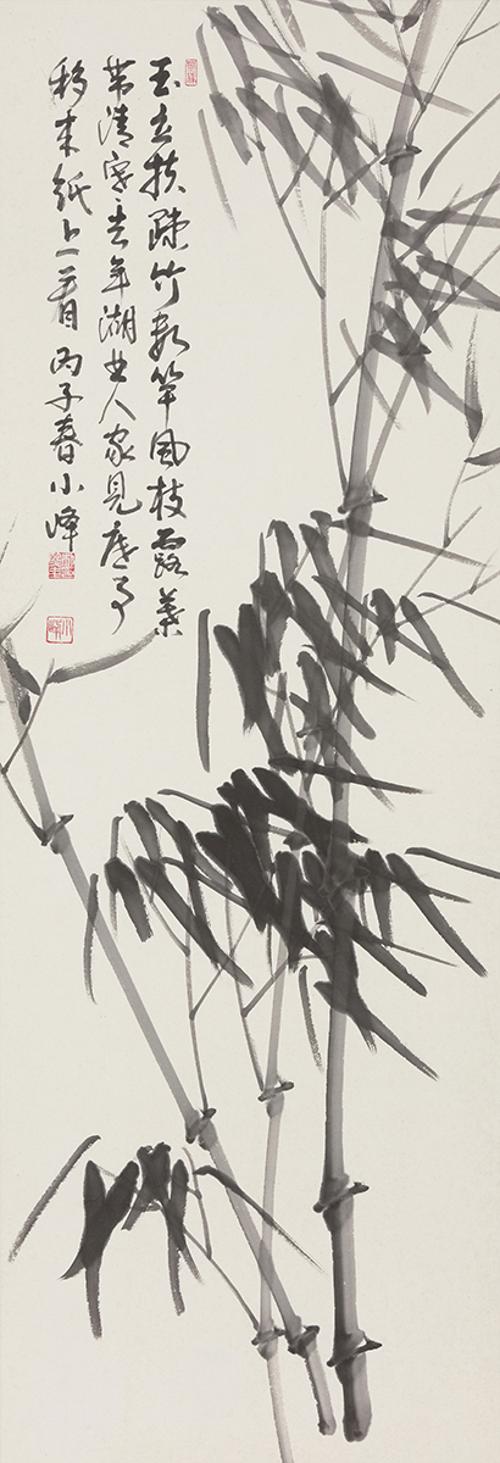 玉立扶疎竹數竿風枝露葉
帶清寒去年湖曲人家見底事
移来紙上看丙子春小峰